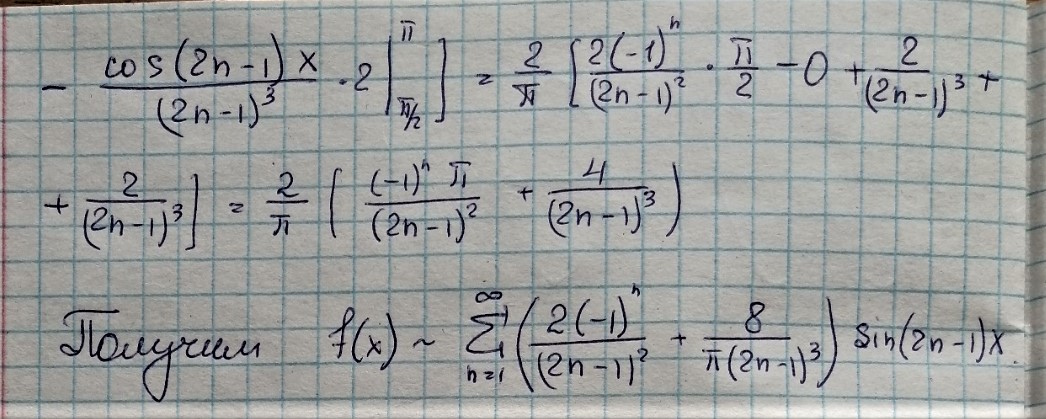 - \frac{\cos(2n-1)x}{(2n-1)^3} \cdot 2 \Big|_{π/2}^{π} \Big] = \frac{2}{π} \Big[ \frac{2(-1)^n}{(2n-1)^2} \cdot \frac{π}{2} - 0 + \frac{2}{(2n-1)^3} +
+ \frac{2}{(2n-1)^3} \Big] = \frac{2}{π} \Big[ \frac{(-1)^n π}{(2n-1)^2} + \frac{4}{(2n-1)^3} \Big)
Получим f(x) ~ \sum_{n=1}^{∞} \Big( \frac{2(-1)^n}{(2n-1)^2} + \frac{8}{π(2n-1)^3} \Big) sin(2n-1)x.